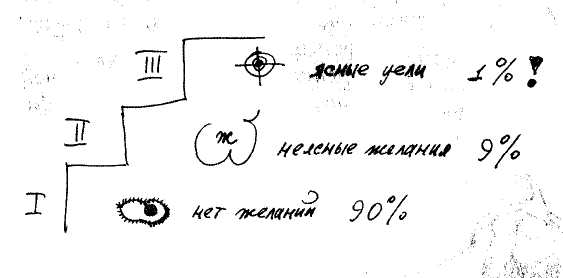 III ясные цели 1%!
II ж неясные желания 9%
I нет желаний 90%